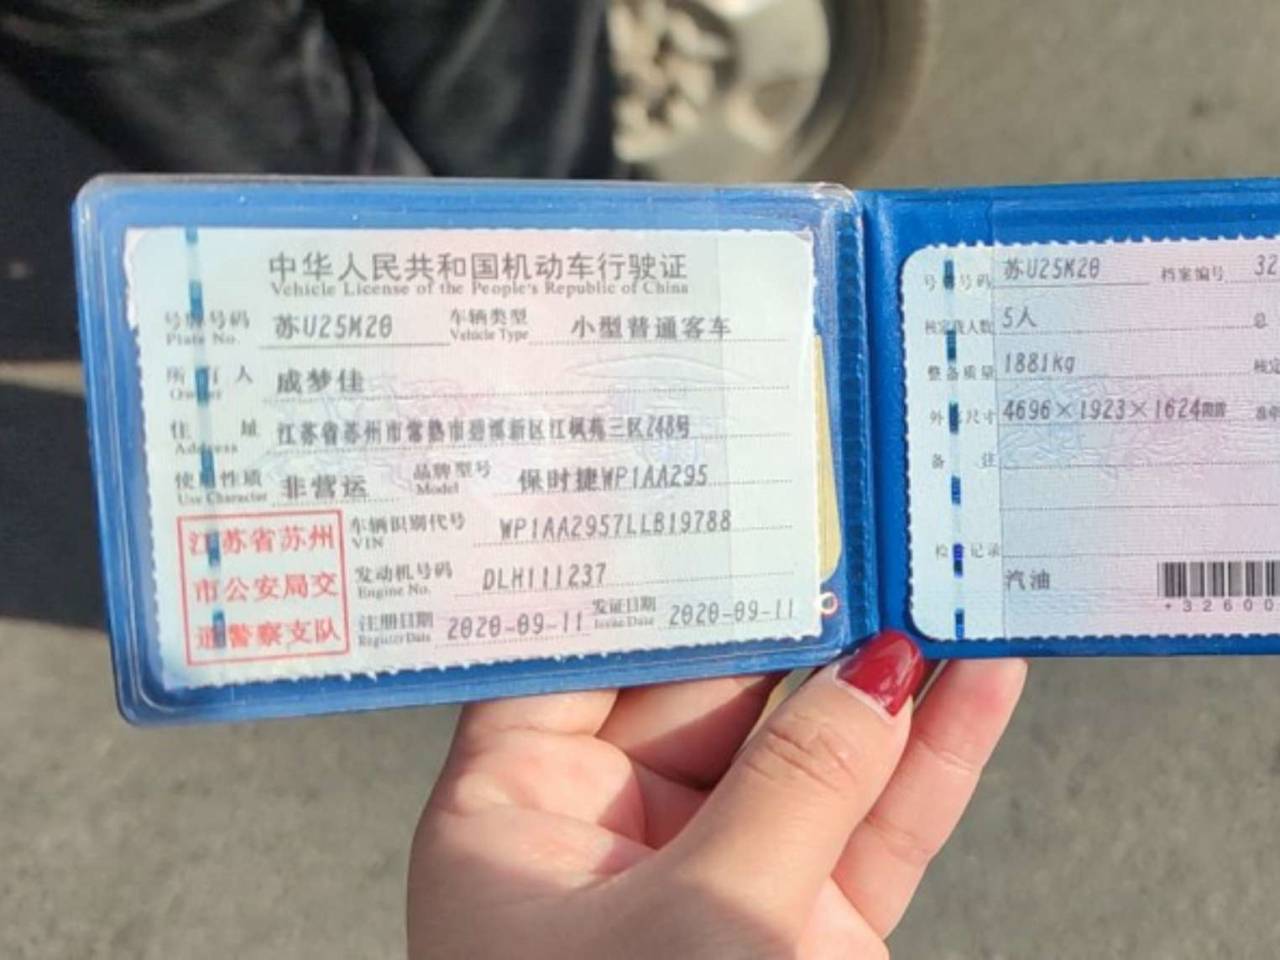 中华人民共和国机动车行驶证
Vehicle License of the People's Republic of China
号牌号码 苏U25M20 车辆类型 小型普通客车
Plate No. Vehicle Type
所有人 成梦佳
Owner
住址 江苏省苏州市常熟市碧溪新区江枫苑三区248号
Address
使用性质 非营运 品牌型号 保时捷WP1AA295
Use Character Model
江苏省苏州
市公安局交
通警察支队
车辆识别代号 WP1AA2957LLB19788
VIN
发动机号码 DLH111237
Engine No.
注册日期 2020-09-11 发证日期 2020-09-11
Register Date Issue Date
号牌号码 苏U25M20 档案编号 32
核定载人数 5人 总
整备质量 1881kg 核定
外廓尺寸 4696×1923×1624mm
备注
检验记录
汽油
*32600